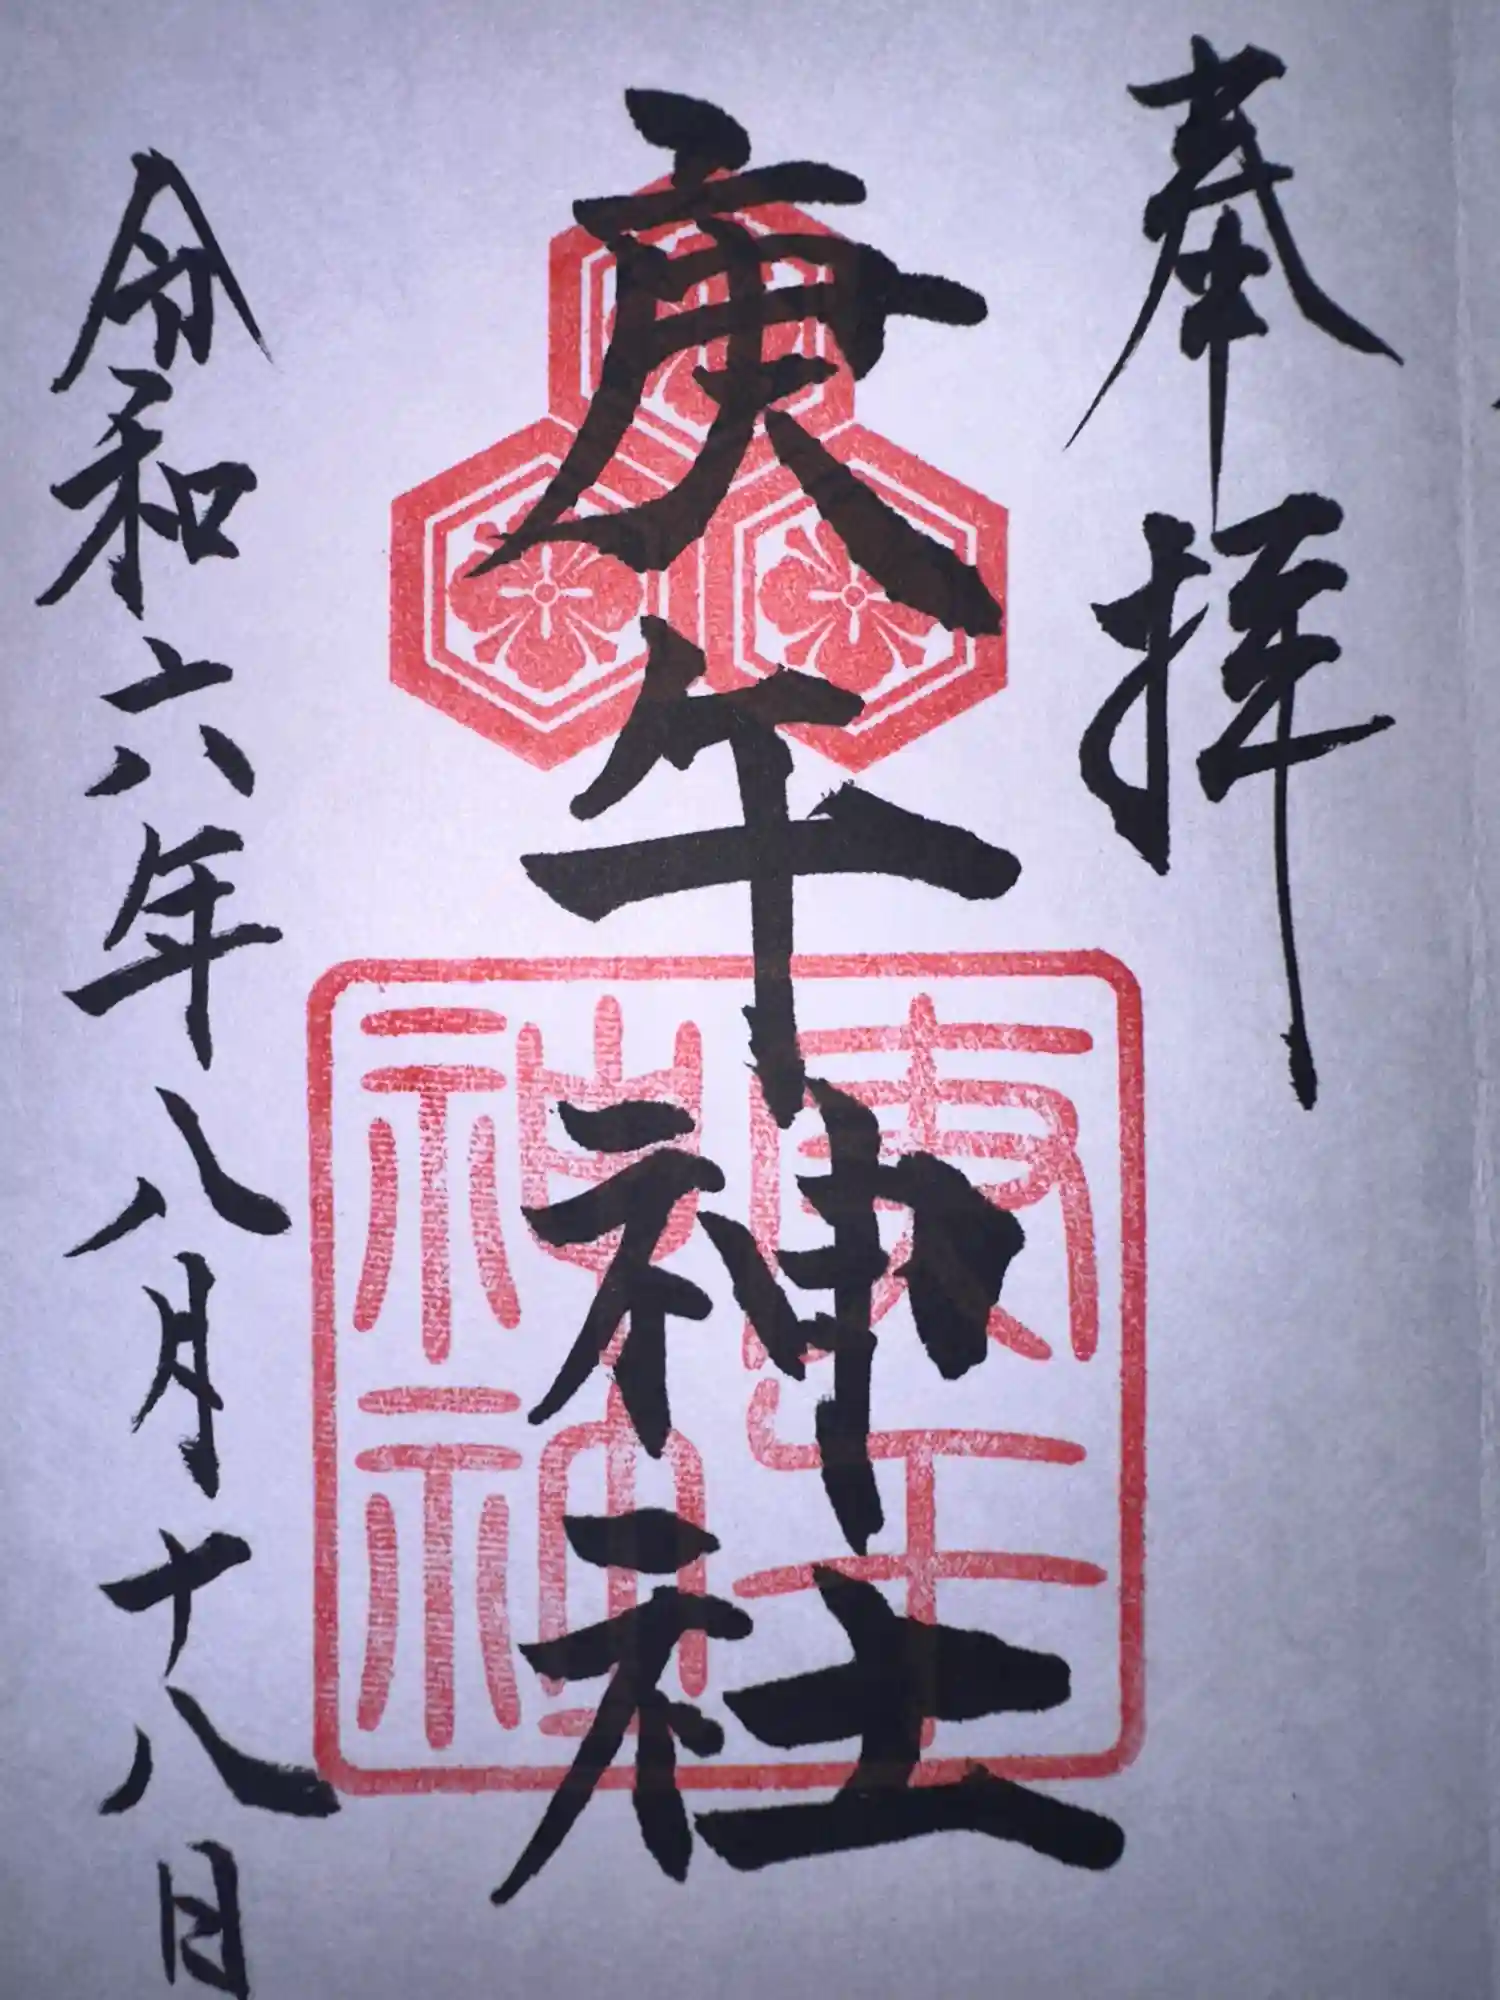 奉拝
庚午神社
令和六年八月十八日
庚午神社